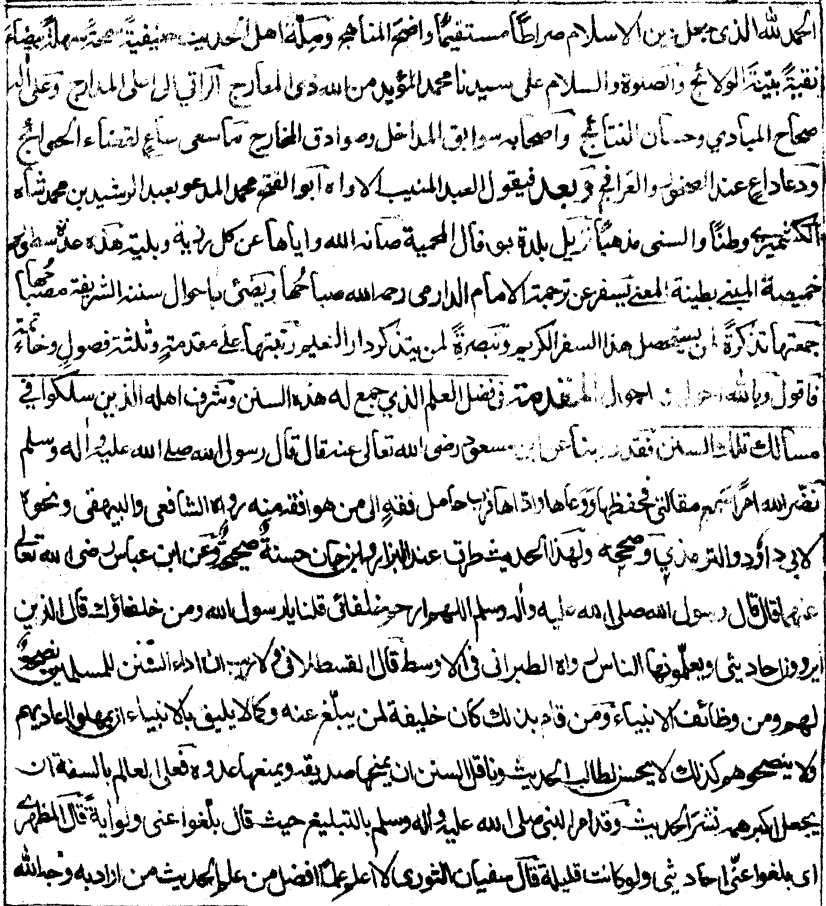 الحمد لله الذي جعل دين الاسلام صراطاً مستقيماً واضح المناهج وملة اهل الحديث حنيفية سمحة سهلة بيضاء
نقية بيّنة الولائج والصلوة والسلام على سيدنا محمد المؤيد من الله ذى المعارج الراقي الى اعلى المدارج وعلى اله
صحاح المبادي وحسان النتائج واصحابه سوابق المداخل وصوادق المخارج ما سعى ساعٍ لقضاء الحوائج
ودعا داعٍ عند الصفوف والفرائج وبعد فيقول العبد المنيب الاواه ابو الفتح محمد المدعو بعبد الرشيد بن محمد شاه
الكشميري وطناً والسنى مذهباً نزيل بلدة بهوفال المحمية صانه الله واياها عن كل رزية وبلية هذه عدة سطور
خميصة المبنى بطينة المعنى يسفر عن ترجمة الامام الدارمى رحمه الله صباحُها ويضئ باحوال سننه الشريفة مصباحُها
جمعتها تذكرةً لمن يستحصل هذا السفر الكريم وتبصرةً لمن يتذكر دار النعيم رتبتها على مقدمة وثلثة فصول وخاتمة
فاقول وبالله احول المقدمة فى فضل العلم الذي جمع له هذه السنن وشرف اهله الذين سلكوا في
مسالك تلك السنن فقد روينا عن ابن مسعود رضى الله تعالى عنه قال قال رسول الله صلى الله عليه واله وسلم
نضّر الله امرأ سمع مقالتى فحفظها ووعاها واداها فرب حامل فقه الى من هو افقه منه رواه الشافعى والبيهقى ونحوه
لابى داؤد والترمذي وصححه ولهذا الحديث طرق عند البزار وابن حبان حسنة صحيحة وعن ابن عباس رضى الله تعالى
عنهما قال قال رسول الله صلى الله عليه واله وسلم اللهم ارحم خلفائى قلنا يا رسول الله ومن خلفاؤك قال الذين
يروون احاديثى ويعلّمونها الناس رواه الطبرانى فى الاوسط قال القسطلانى فى لا ريب ان اداء السنن للمسلمين نصيحة
لهم ومن وظائف الانبياء ومن قام بذلك كان خليفة لمن يبلّغ عنه وكما لا يليق بالانبياء ان يمهلوا اعاديهم
ولا ينصحوهم كذلك لا يحسن لطالب الحديث وناقل السنن ان يمنحها صديقه ويمنعها عدوه فعلى العالم بالسنة ان
يجعل اكبر همه نشر الحديث وقد امر النبى صلى الله عليه واله وسلم بالتبليغ حيث قال بلّغوا عنى ولو اية قال المظهرى
اى بلغوا عنّى احاديثى ولو كانت قليلة قال سفيان الثورى لا اعلم علماً افضل من علم الحديث من اراد به وجه الله